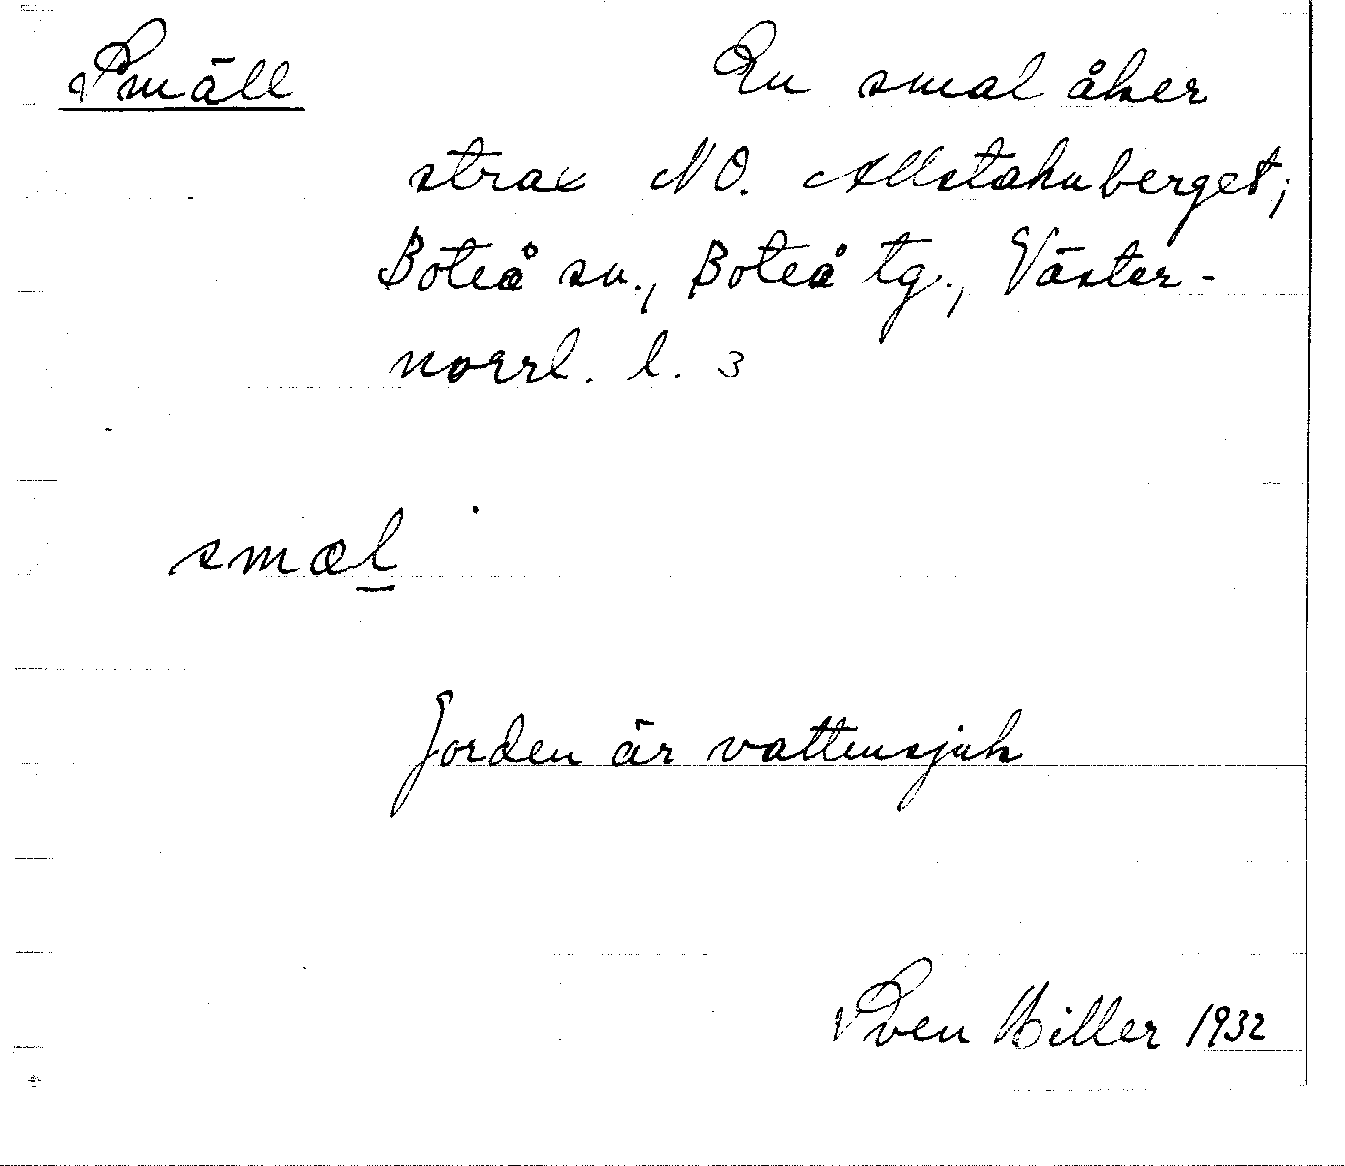 Smäll En smal åker
strax NO. Allstaknberget;
Boteå sn., Boteå tg., Väster-
norrl. l. 3
smæl
Jorden är vattensjuk
Sven Hiller 1932